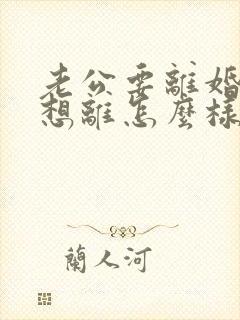 老公要離婚
想離怎麼樣
蘭人河